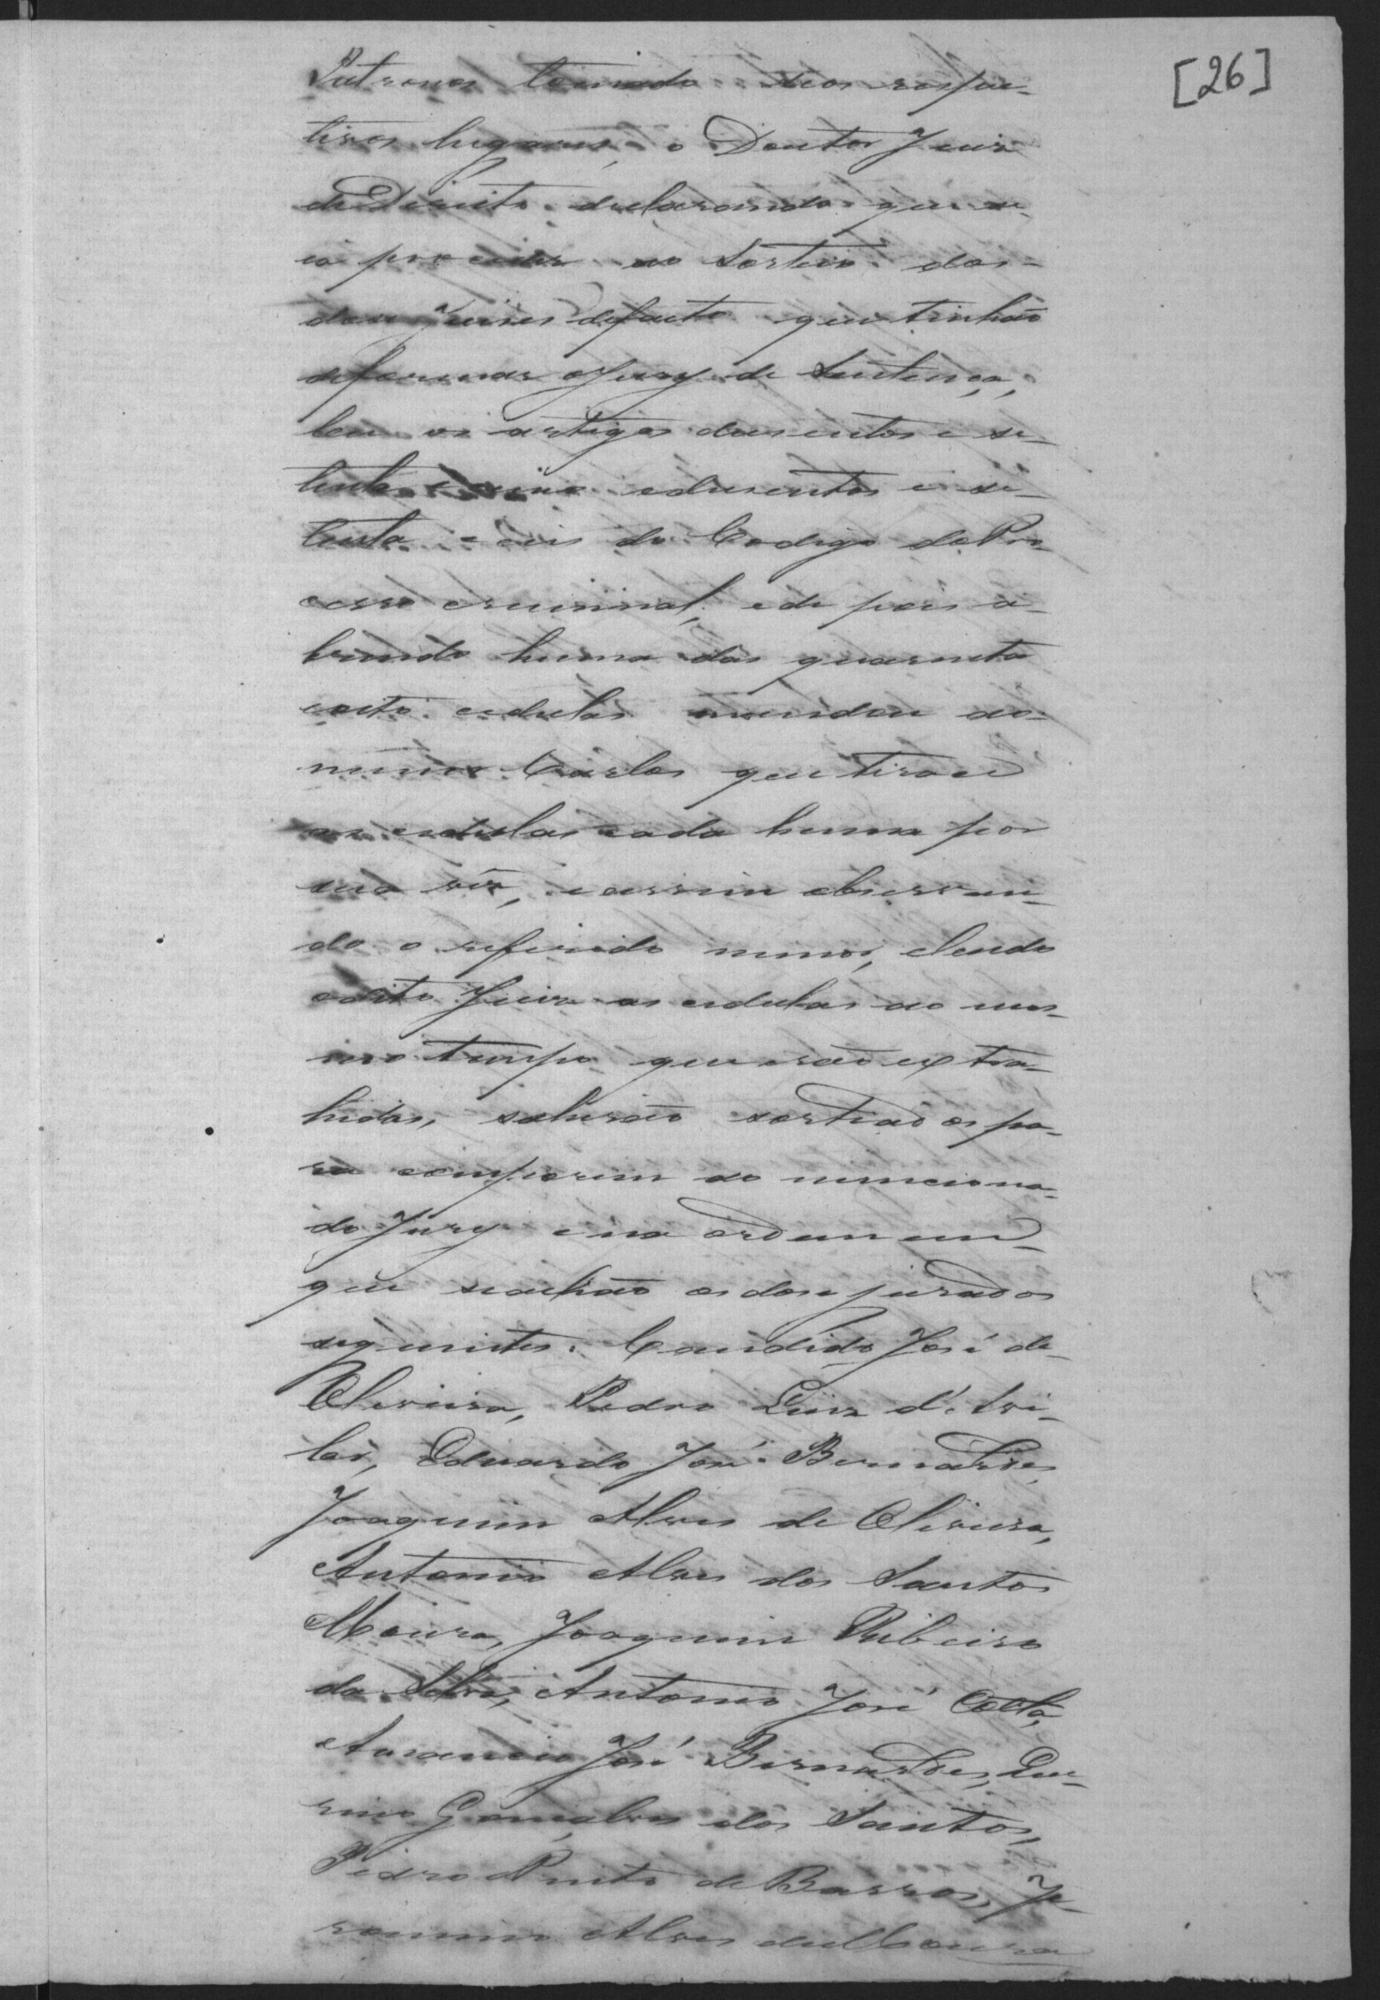 [26]
Patronos tomado seos respec-
tivos lugares, o Doutor Juiz
de Direito declarando que se
ia proceder ao Sorteio dos
doze Juizes de facto que tinhão
de formar o Jury de Sentença,
leu os artigos duzentos e se-
tenta e cinco e duzentos e se-
tenta e seis do Codigo do Pro-
cesso criminal, e de pois a-
brindo huma das quarenta
e oito cedulas mandou ao
menor Carlos que tirace
as cedulas cada huma por
sua vêz, e assim observan-
do o referido menor, e lendo
o dito Juiz as cedulas ao mes-
mo tempo que erão extra-
hidas, sahirão sorteados pa-
ra comporem do menciona-
do Jury e na ordem em
que se achão os doze jurados
seguintes. Candido José de
Oliveira, Pedro Luiz d'Avi-
la, Eduardo José Bernardes,
Joaquim Alves de Oliveira,
Antonio Alves dos Santos
Moura, Joaquim Ribeiro
da Silva, Antonio José Costa,
Amancio José Bernardes,
Gonçalves dos Santos,
Pedro de Barros, Je-
ronimo Alves de Moura